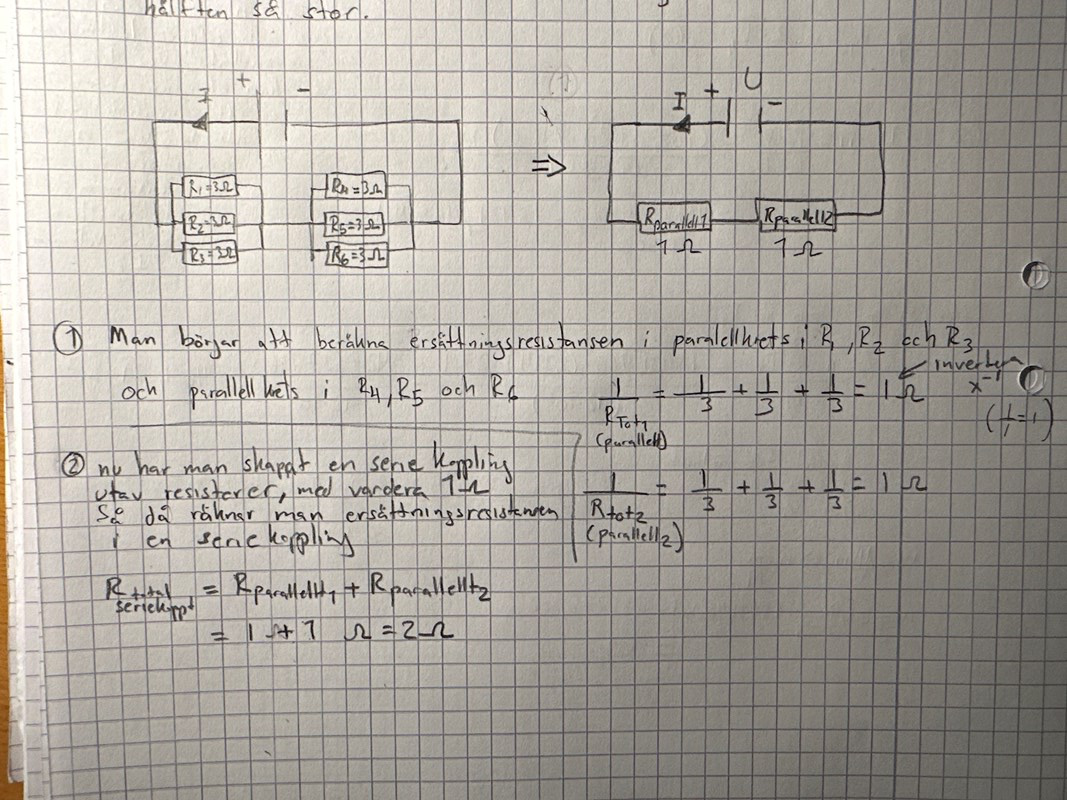 hälften så stor.
I + -
R₁=3Ω R₄=3Ω
R₂=3Ω R₅=3Ω
R₃=3Ω R₆=3Ω
⇒
I + U -
Rparallell1 Rparallell2
1 Ω 1 Ω
① Man börjar att beräkna ersättningsresistansen i paralellkrets i R₁, R₂ och R₃
och parallell krets i R₄, R₅ och R₆
1/R_Tot₁ (parallell) = 1/3 + 1/3 + 1/3 = 1 Ω
invertera
x⁻¹
(1/1=1)
② nu har man skapat en serie koppling
utav resisterer, med vardera 1Ω
Så då räknar man ersättningsresistansen
i en serie koppling
1/R_tot₂ (parallell₂) = 1/3 + 1/3 + 1/3 = 1 Ω
R total seriekoppl = Rparallellt₁ + Rparallellt₂
= 1 + 1 Ω = 2Ω